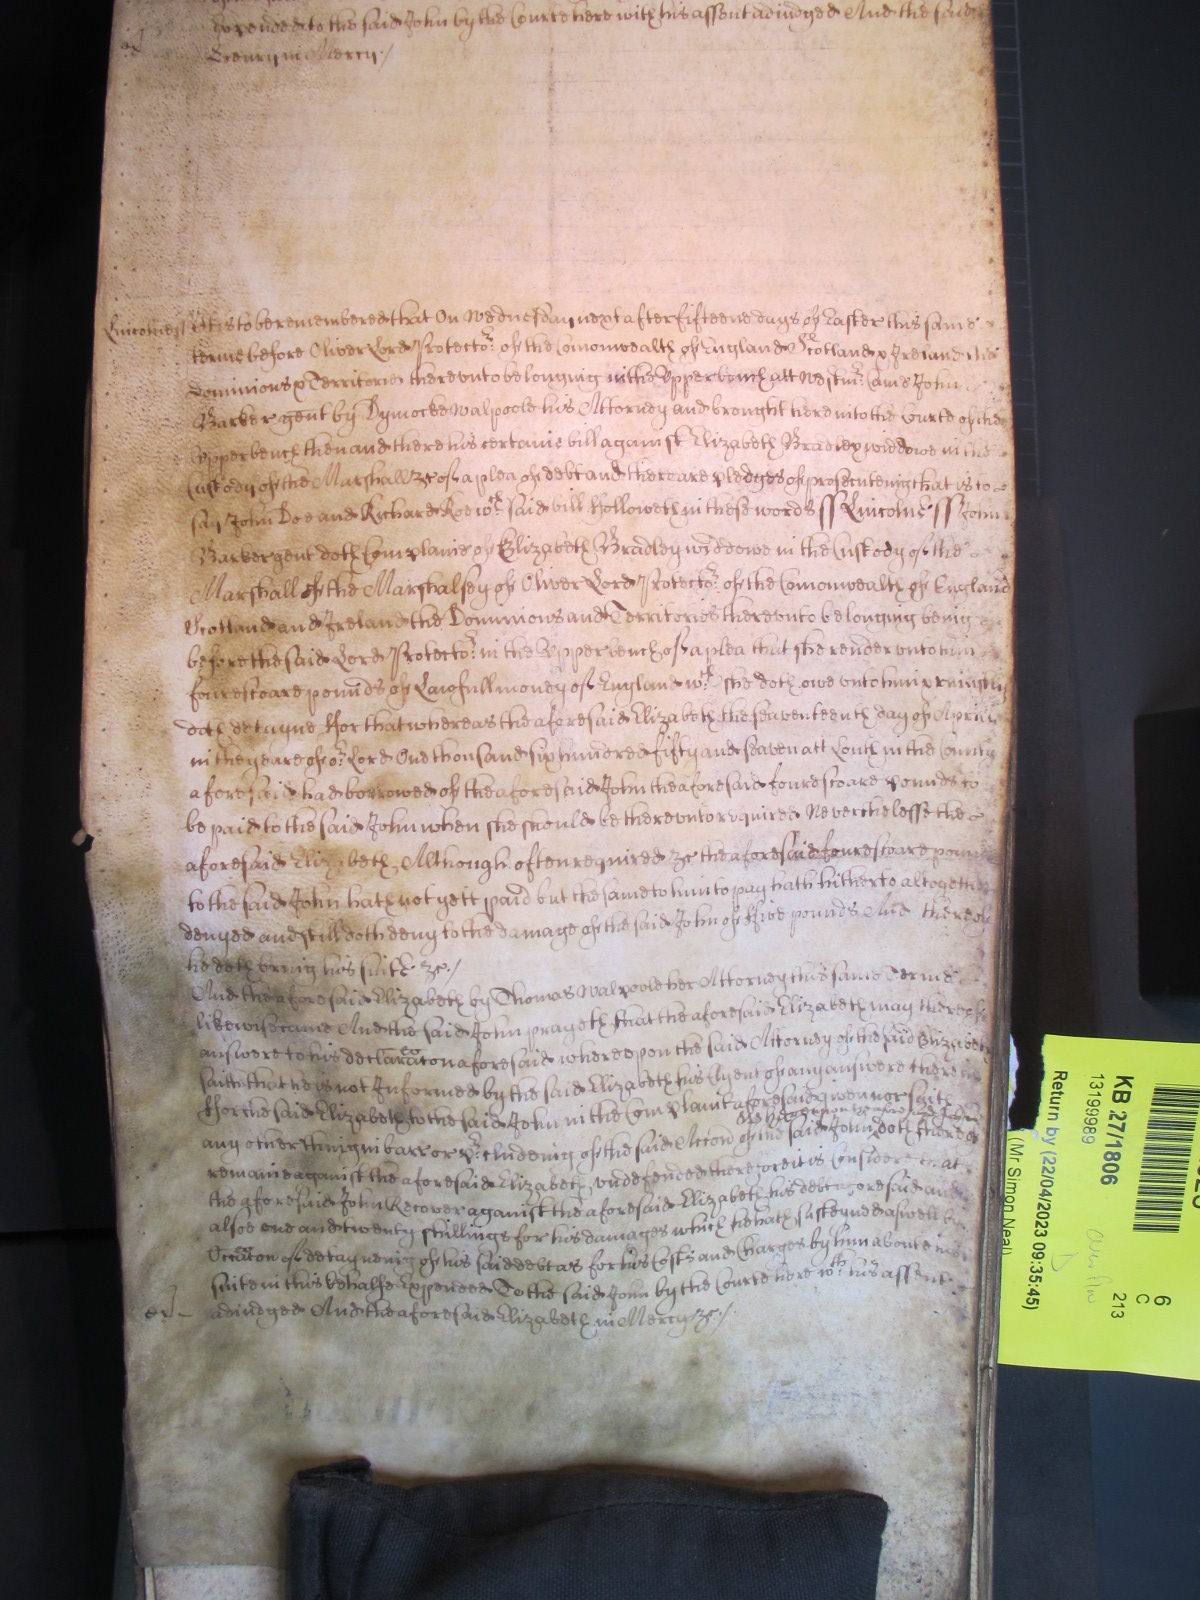 expended to the said John by the Courte here with his assent adiudged And the said
Henry in Mercy /
Lincolne ss Itt is to be remembered that On Wednesday next after fifteene dayes of Easter this same
terme before Oliver Lord Protector of the Comonwealth of England Scotland & Ireland the
Dominions & Territories thereunto belonging in the Upper bench att Westmr Came John
Barker gent by Dymocke Walpoole his Attorney and brought here into the Courte of the
Upper bench then and there his certaine bill against Elizabeth Bradley widdowe in the
Custody of the Marshall &c of a plea of debt and there are pledges of prosecuteing that is to
say John Doe and Richard Roe wch said bill followeth in these words ss Lincolne ss John
Barker gent doth Complaine of Elizabeth Bradley widdowe in the Custody of the
Marshall of the Marshalsey of Oliver Lord Protector of the Comonwealth of England
Scotland and Ireland the Dominions and Territories thereunto belonging being
before the said Lord Protector in the Upper bench of a plea that she render unto him
fourescoare pounds of Lawfull money of England wch she doth owe unto him & uniustly
doth detayne For that whereas the aforesaid Elizabeth the seaventeenth day of Aprill
in the yeare of or Lord One thousand six hundred fifty and seaven att Louth in the County
aforesaid had borrowed of the aforesaid John the aforesaid fourescoare pounds to
be paid to the said John when she should be thereunto required Neverthelesse the
aforesaid Elizabeth Although often required &c the aforesaid fourescoare pounds
to the said John hath not yett paid but the same to him to pay hath hitherto altogether
denyed and still doth deny to the damage of the said John of Five pounds And thereof
he doth bring his suite &c /
And the aforesaid Elizabeth by Thomas Walpoole her Attorney this same Terme
likewise came And the said John prayeth that the aforesaid Elizabeth may thereof
answere to his declaracon aforesaid whereupon the said Attorney of the said Elizabeth
saith that he is not Informed by the said Elizabeth his Clyent of any answere there
For the said Elizabeth to the said John in the Complaint aforesaid given nor saith
any other thing in barr or pr cludeing of the said Accon of the said John doth thereof
remaine against the aforesaid Elizabeth undefenced therefore it is Considered that
the aforesaid John Recover against the aforesaid Elizabeth his debt aforesaid and
alsoe one and twenty shillings for his damages which he hath susteyned aswell by
Occacon of detayneing of his said debt as for his Costs and Charges by him aboute his
suite in this behalfe expended To the said John by the Courte here wth his assent
adiudged And the aforesaid Elizabeth in Mercy &c /
KB 27/1806
13199989
Return by (22/04/2023 09:35:45)
(Mr Simon Neal)
6
C
213